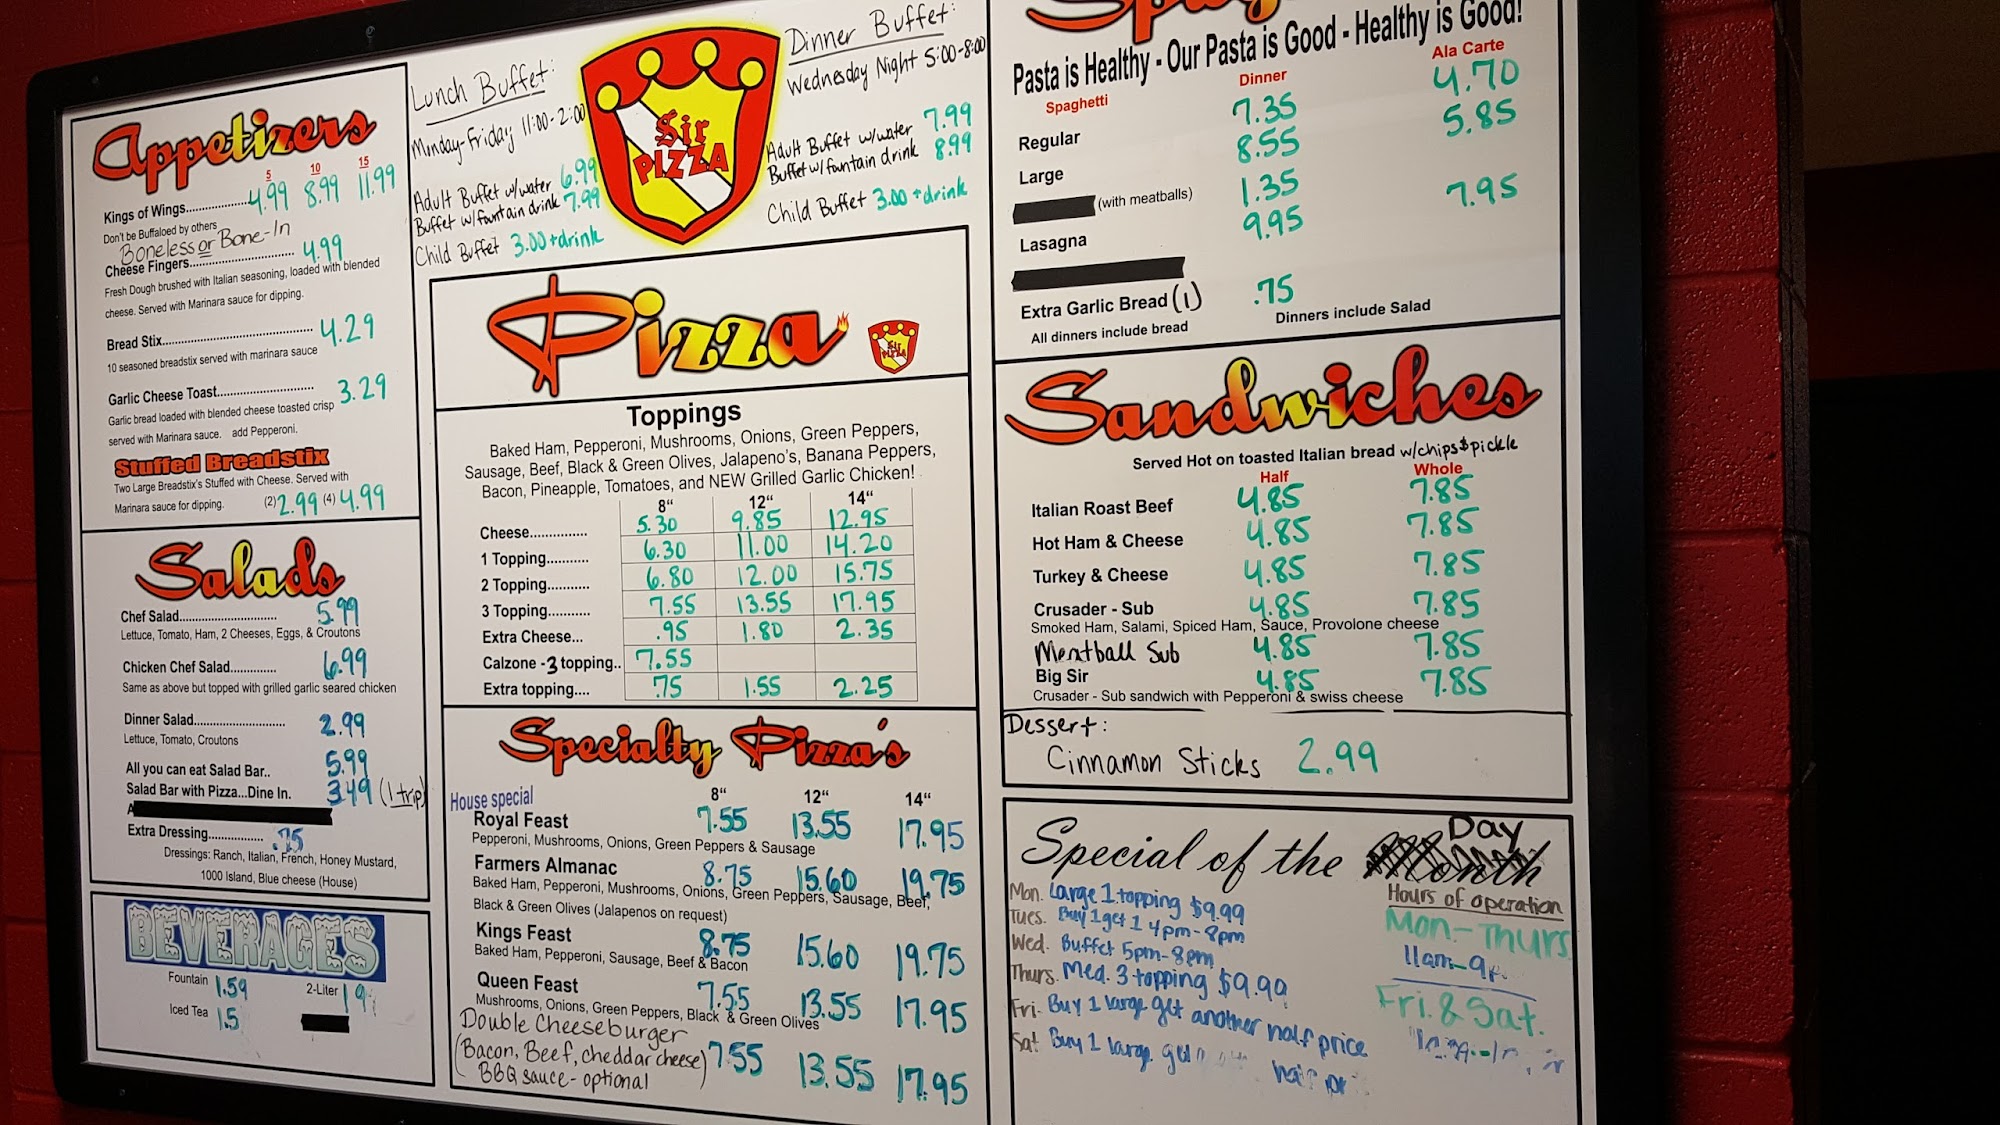 Appetizers
5 10 15
Kings of Wings.................... 4.99 8.99 11.99
Don't be Buffaloed by others
Boneless or Bone-In
Cheese Fingers............................ 4.99
Fresh Dough brushed with Italian seasoning, loaded with blended
cheese. Served with Marinara sauce for dipping.
Bread Stix........................................ 4.29
10 seasoned breadstix served with marinara sauce
Garlic Cheese Toast.......................... 3.29
Garlic bread loaded with blended cheese toasted crisp
served with Marinara sauce. add Pepperoni.
Stuffed Breadstix
Two Large Breadstix's Stuffed with Cheese. Served with
Marinara sauce for dipping. (2) 2.99 (4) 4.99
Salads
Chef Salad............................. 5.99
Lettuce, Tomato, Ham, 2 Cheeses, Eggs, & Croutons
Chicken Chef Salad.............. 6.99
Same as above but topped with grilled garlic seared chicken
Dinner Salad........................... 2.99
Lettuce, Tomato, Croutons
All you can eat Salad Bar.. 5.99
Salad Bar with Pizza...Dine In. 3.49 (1 trip)
A
Extra Dressing................ .75
Dressings: Ranch, Italian, French, Honey Mustard,
1000 Island, Blue cheese (House)
BEVERAGES
Fountain 1.59 2-Liter
Iced Tea 1.5
Lunch Buffet:
Monday-Friday 11:00-2:00
Adult Buffet w/water 6.99
Buffet w/fountain drink 7.99
Child Buffet 3.00 + drink
Sir
PIZZA
Dinner Buffet:
Wednesday Night 5:00-8:00
Adult Buffet w/water 7.99
Buffet w/fountain drink 8.99
Child Buffet 3.00 + drink
Pizza
Sir
PIZZA
Toppings
Baked Ham, Pepperoni, Mushrooms, Onions, Green Peppers,
Sausage, Beef, Black & Green Olives, Jalapeno's, Banana Peppers,
Bacon, Pineapple, Tomatoes, and NEW Grilled Garlic Chicken!
8" 12" 14"
Cheese............... 5.30 9.85 12.95
1 Topping........... 6.30 11.00 14.20
2 Topping........... 6.80 12.00 15.75
3 Topping........... 7.55 13.55 17.95
Extra Cheese... .95 1.80 2.35
Calzone -3 topping.. 7.55
Extra topping.... .75 1.55 2.25
Specialty Pizza's
House special 8" 12" 14"
Royal Feast 7.55 13.55 17.95
Pepperoni, Mushrooms, Onions, Green Peppers & Sausage
Farmers Almanac 8.75 15.60 19.75
Baked Ham, Pepperoni, Mushrooms, Onions, Green Peppers, Sausage, Beef,
Black & Green Olives (Jalapenos on request)
Kings Feast 8.75 15.60 19.75
Baked Ham, Pepperoni, Sausage, Beef & Bacon
Queen Feast 7.55 13.55 17.95
Mushrooms, Onions, Green Peppers, Black & Green Olives
Double Cheeseburger
(Bacon, Beef, cheddar cheese) 7.55 13.55 17.95
BBQ sauce- optional
Pasta is Healthy - Our Pasta is Good - Healthy is Good!
Spaghetti Dinner Ala Carte
Regular 7.35 4.70
Large 8.55 5.85
(with meatballs) 1.35
Lasagna 9.95 7.95
Extra Garlic Bread (1) .75
All dinners include bread Dinners include Salad
Sandwiches
Served Hot on toasted Italian bread w/chips & pickle
Half Whole
Italian Roast Beef 4.85 7.85
Hot Ham & Cheese 4.85 7.85
Turkey & Cheese 4.85 7.85
Crusader - Sub 4.85 7.85
Smoked Ham, Salami, Spiced Ham, Sauce, Provolone cheese
Meatball Sub 4.85 7.85
Big Sir 4.85 7.85
Crusader - Sub sandwich with Pepperoni & swiss cheese
Dessert:
Cinnamon Sticks 2.99
Special of the Month Day
Mon. Large 1 topping $9.99
Tues. Buy 1 get 1 4pm-8pm
Wed. Buffet 5pm-8pm
Thurs. Med. 3 topping $9.99
Fri. Buy 1 large get another half price
Sat Buy 1 large get
Hours of operation
Mon-Thurs
11am-9
Fri. & Sat.